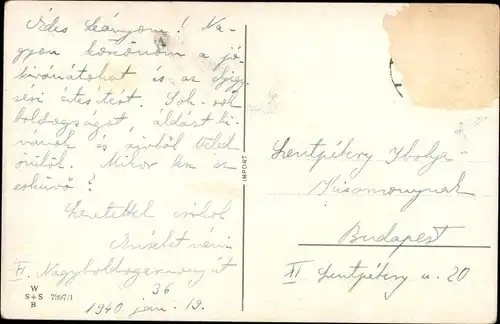 Édes leányom! Na-
gyon köszönöm a jó-
kivánatokat és az eljegy-
zési értesitést. Sok-sok
boldogságot, áldást ki-
vánok és szivből veled
örülök. Mikor lesz az
esküvő?
Szeretettel csókol
néni
XI. Nagyboldogasszony út
36
1940 jan. 19.
W
S+S 7997/1
B
IMPORT
Szentpétery Ibolya
Kisasszonynak
Budapest
XI Szentpétery u. 20